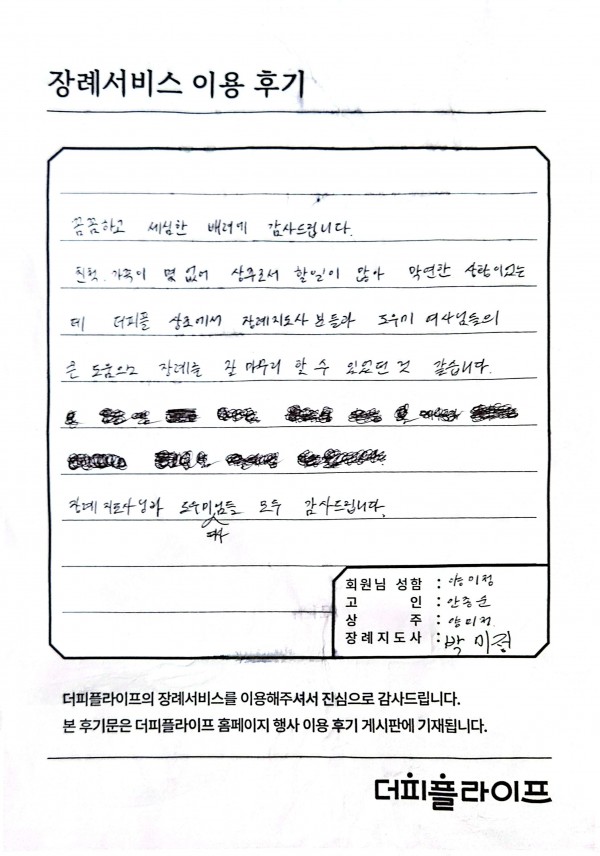 장례서비스 이용 후기
꼼꼼하고 세심한 배려에 감사드립니다.
친척, 가족이 몇 없어 상주로서 할일이 많아 막연한 사람이었는
데 더피플 상조에서 장례지도사 분들과 도우미 여사님들의
큰 도움으로 장례를 잘 마무리 할 수 있었던 것 같습니다.
장례지도사님과 도우미여사님들 모두 감사드립니다.
회원님 성함 : 양미정
고 인 : 안종순
상 주 : 양미정
장례지도사 : 박미령
더피플라이프의 장례서비스를 이용해주셔서 진심으로 감사드립니다.
본 후기문은 더피플라이프 홈페이지 행사 이용 후기 게시판에 기재됩니다.
더피플라이프